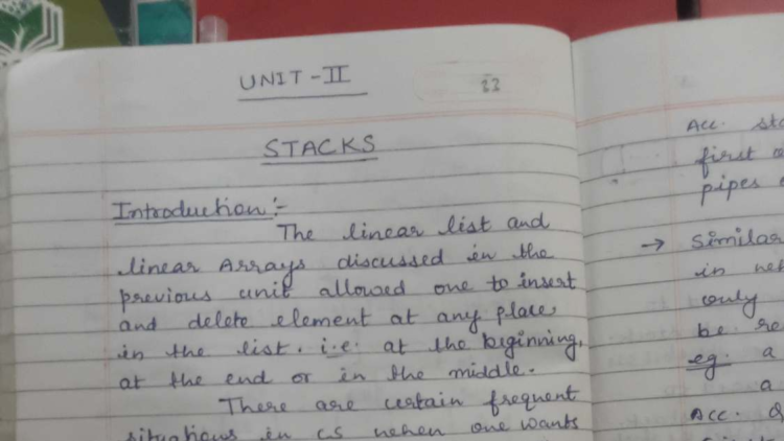 UNIT-II
22
STACKS
Introduction :-
The linear list and
linear Arrays discussed in the
previous unit allowed one to insert
and delete element at any place
in the list. i.e. at the beginning,
at the end or in the middle.
There are certain frequent
situations in CS when one wants
Acc.
first
pipes
→ Similar
in
only
be re
eg. a
a
Acc.